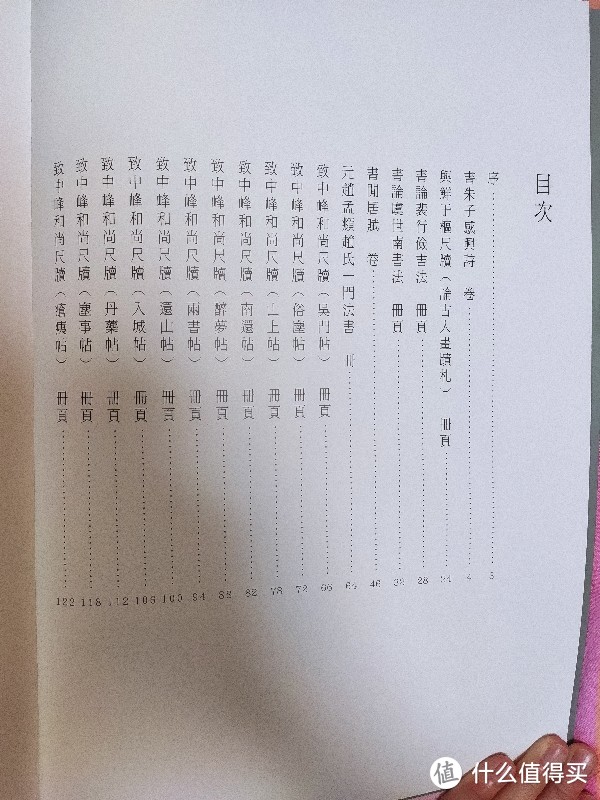 目次
序 3
書朱子感興詩 卷 4
與鮮于樞尺牘(論古人畫蹟札) 冊頁 24
書論裴行儉書法 冊頁 28
書論虞世南書法 冊頁 32
書閒居賦 卷 46
元趙孟頫趙氏一門法書 冊 64
致中峰和尚尺牘(吳門帖) 冊頁 66
致中峰和尚尺牘(俗塵帖) 冊頁 72
致中峰和尚尺牘(上帖) 冊頁 78
致中峰和尚尺牘(南還帖) 冊頁 82
致中峰和尚尺牘(醉夢帖) 冊頁 88
致中峰和尚尺牘(兩書帖) 冊頁 94
致中峰和尚尺牘(還山帖) 冊頁 100
致中峰和尚尺牘(入城帖) 冊頁 106
致中峰和尚尺牘(丹藥帖) 冊頁 112
致中峰和尚尺牘(塵事帖) 冊頁 118
致中峰和尚尺牘(瘡痍帖) 冊頁 122
值 什么值得买